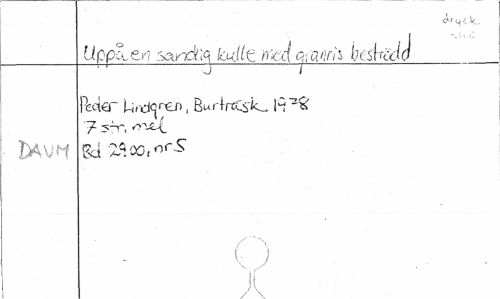 tryck
Uppå en sandig kulle med granris beströdd
Peder Lindgren, Burträsk 1978
7 str, mel
DAUM Bd 2900, nr 5